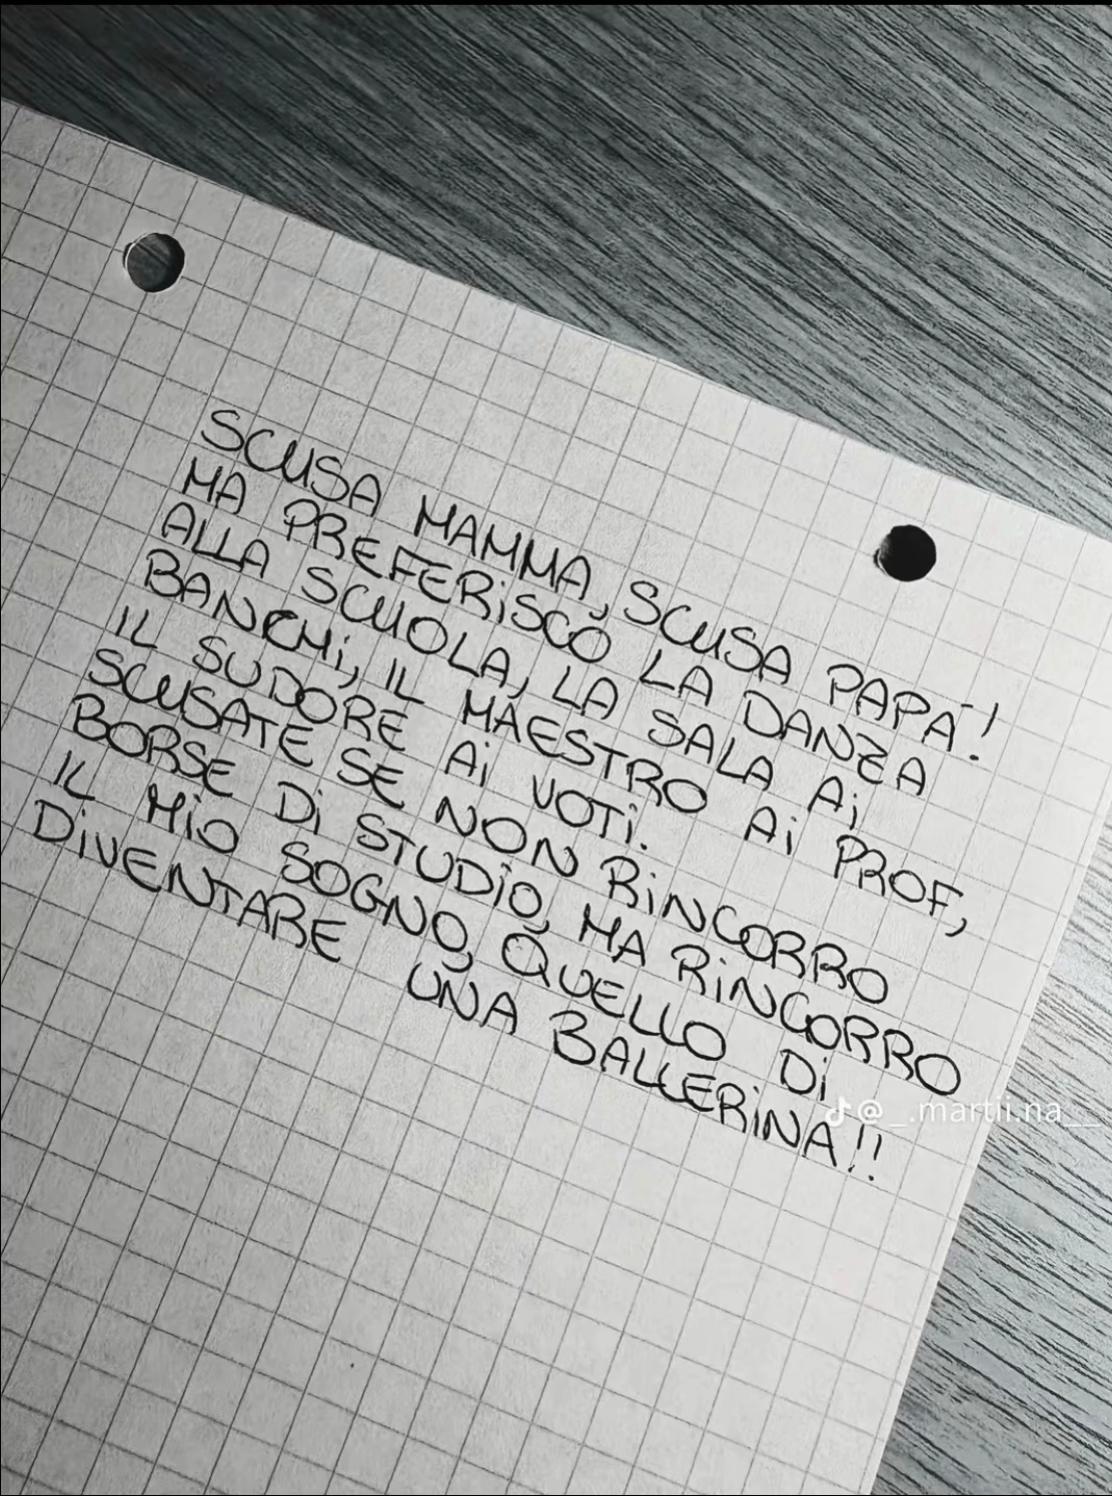 SCUSA MAMMA, SCUSA PAPÀ!
MA PREFERISCO LA DANZA
ALLA SCUOLA, LA SALA Ai
BANCHi, IL MAESTRO Ai PROF,
IL SUDORE Ai VOTi.
SCUSATE SE NON RiNCORRO
BORSE Di STUDiO, MA RiNCORRO
IL MiO SOGNO, QUELLO Di
DiVENTARE UNA BALLERiNA!!
@_.martii.na__